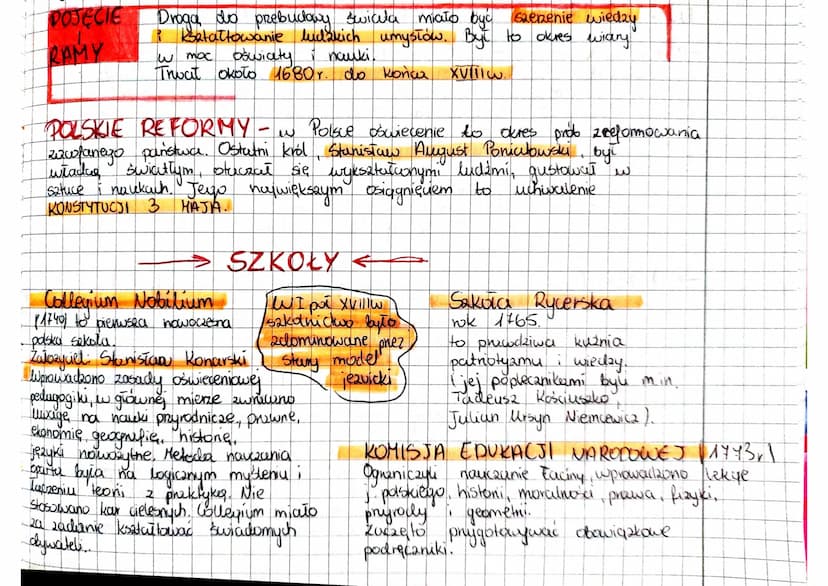 POJĘCIE
I
RAMY
Drogą do przebudowy świata miało być szerzenie wiedzy
i kształtowanie ludzkich umysłów. Był to okres wiary
w moc oświaty i nauki.
Trwał około 1680r. do końca XVIIIw.
POLSKIE REFORMY - w Polsce oświecenie to okres prób zreformowania
zacofanego państwa. Ostatni król, Stanisław August Poniatowski, był
władcą światłym, otaczał się wykształconymi ludźmi, gustował w
sztuce i naukach. Jego największym osiągnięciem to uchwalenie
KONSTYTUCJI 3 MAJA.
→ SZKOŁY ←
Collegium Nobilium
(1740) to pierwsza nowoczesna
polska szkoła.
Założyciel: Stanisław Konarski
Wprowadzono zasady oświeceniowej
pedagogiki, w głównej mierze zwrócono
uwagę na nauki przyrodnicze, prawne,
ekonomię, geografię, historię,
języki nowożytne. Metoda nauczania
oparta była na logicznym myśleniu i
łączeniu teorii z praktyką. Nie
stosowano kar cielesnych. Collegium miało
za zadanie kształtować świadomych
obywateli.
W I poł XVIIIw
szkolnictwo było
zdominowane przez
stary model
jezuicki
Szkoła Rycerska
rok 1765.
to prawdziwa kuźnia
patriotyzmu i wiedzy.
(jej podopiecznikami byli m.in.
Tadeusz Kościuszko,
Julian Ursyn Niemcewicz).
KOMISJA EDUKACJI NARODOWEJ (1773r)
Ograniczyli nauczanie łaciny, wprowadzono lekcje
j. polskiego, historii, moralności, prawa, fizyki,
przyrody i geometrii.
Zaczęto przygotowywać obowiązkowe
podręczniki.